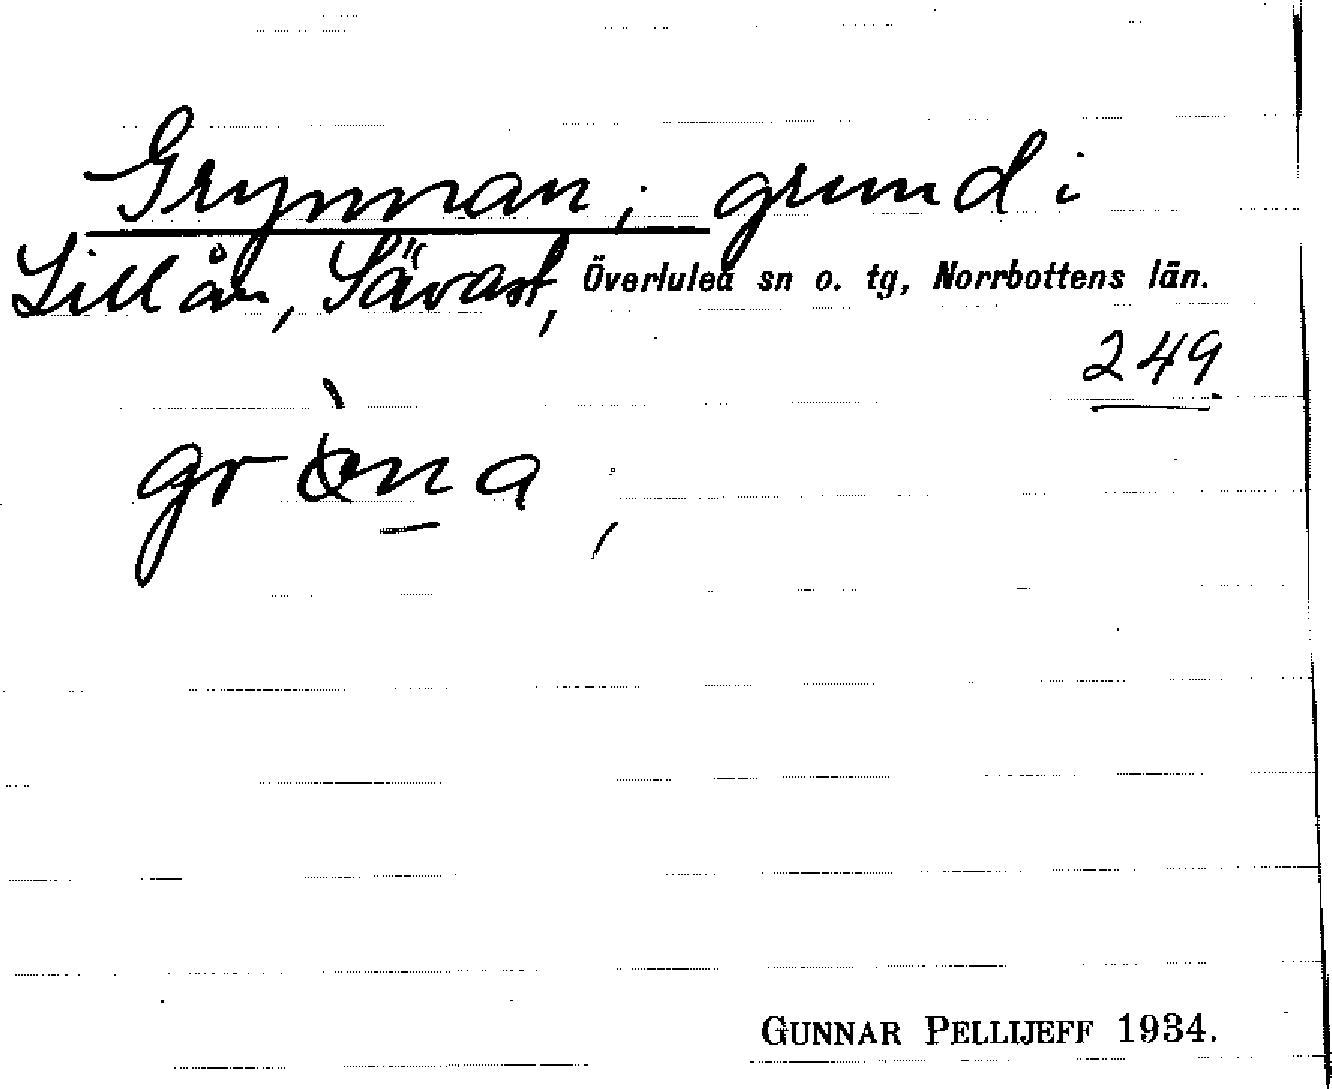 Grynnan, grund i
Lillån, Sävast, Överluleå sn o. tg, Norrbottens län.
249
GUNNAR PELLIJEFF 1934.